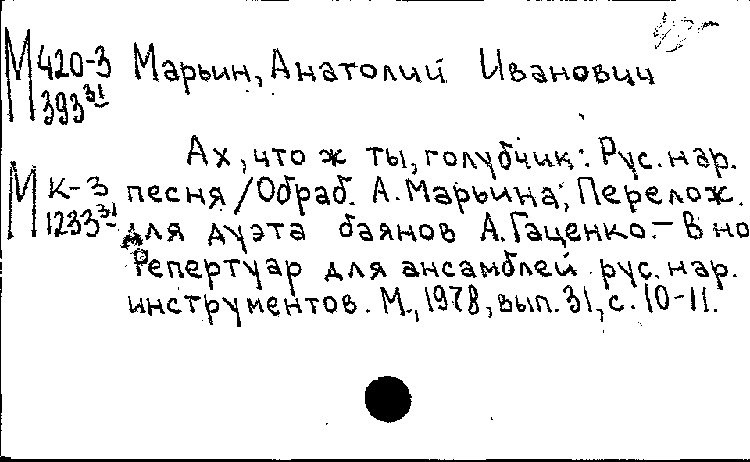 М 420-3 Марьин, Анатолий Иванович
393 31
Ах, что ж ты, голубчик: Рус. нар.
М К-3 песня /Обраб. А. Марьина; Перелож.
1233 31 для дуэта баянов А. Гаценко. – В но
Репертуар для ансамблей рус. нар.
инструментов. М., 1978, вып. 31, с. 10-11.